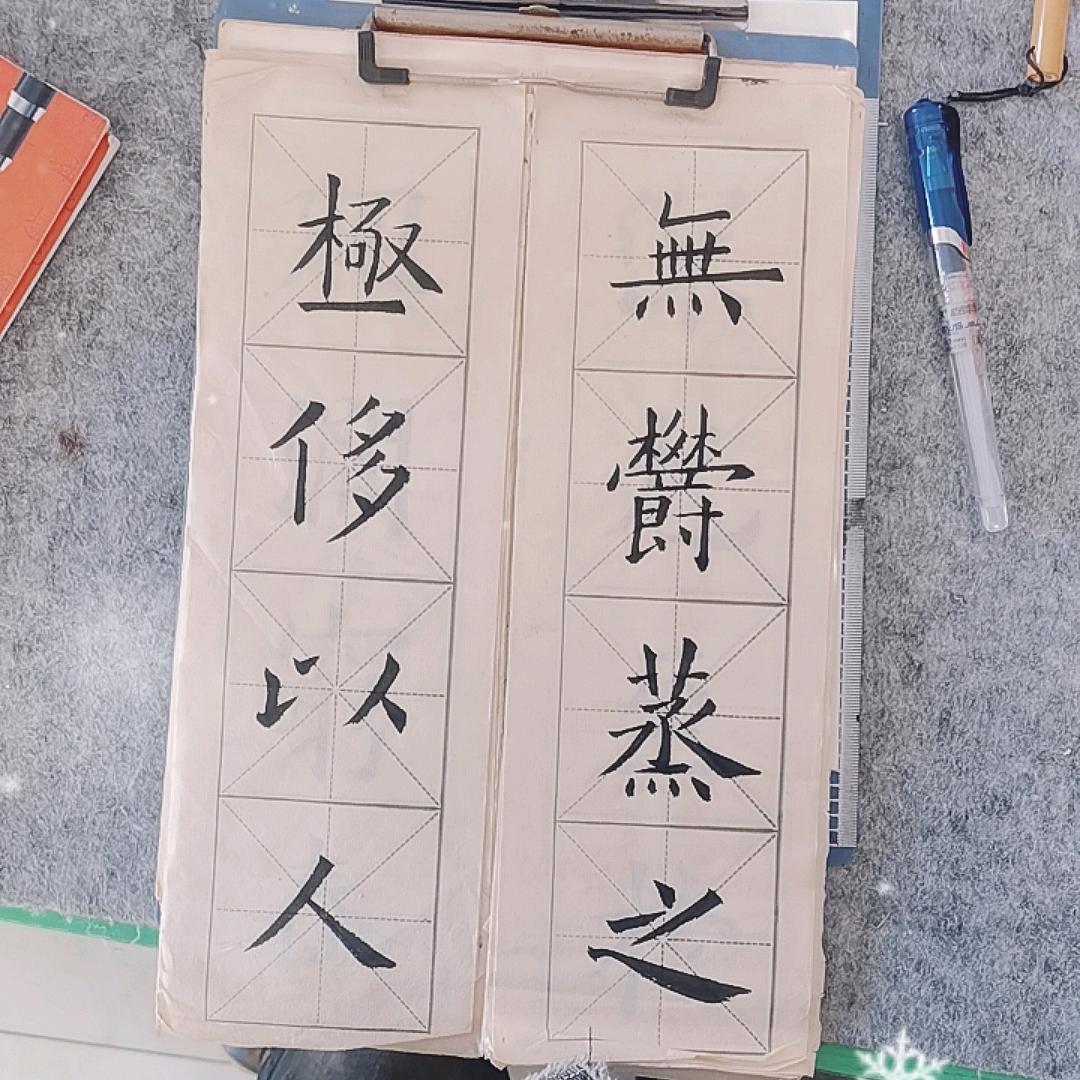 無鬱蒸之
極侈以人